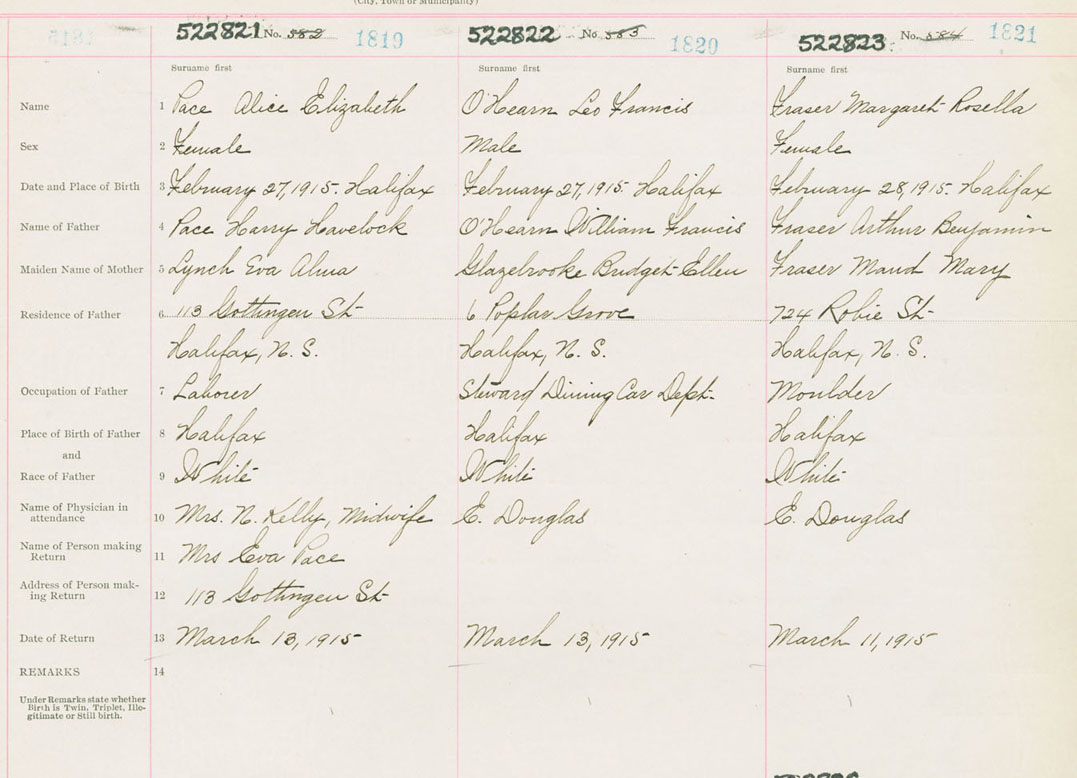 (City, Town or Municipality)
522821 No. 582 1819 522822 No 583 1820 522823 No. 584 1821
Surname first Surname first Surname first
Name 1 Pace Alice Elizabeth O'Hearn Leo Francis Fraser Margaret Rosella
Sex 2 Female Male Female
Date and Place of Birth 3 February 27, 1915 Halifax February 27, 1915 Halifax February 28, 1915 Halifax
Name of Father 4 Pace Harry Havelock O'Hearn William Francis Fraser Arthur Benjamin
Maiden Name of Mother 5 Lynch Eva Alma Glazebrooke Bridget Ellen Fraser Maud Mary
Residence of Father 6 113 Gottingen St 6 Poplar Grove 724 Robie St
Halifax, N. S. Halifax, N. S. Halifax, N. S.
Occupation of Father 7 Laborer Steward Dining Car Dept. Moulder
Place of Birth of Father 8 Halifax Halifax Halifax
and
Race of Father 9 White White White
Name of Physician in
attendance 10 Mrs. N. Kelly, Midwife E. Douglas E. Douglas
Name of Person making
Return 11 Mrs Eva Pace
Address of Person mak-
ing Return 12 113 Gottingen St
Date of Return 13 March 13, 1915 March 13, 1915 March 11, 1915
REMARKS 14
Under Remarks state whether
Birth is Twin, Triplet, Ille-
gitimate or Still birth.